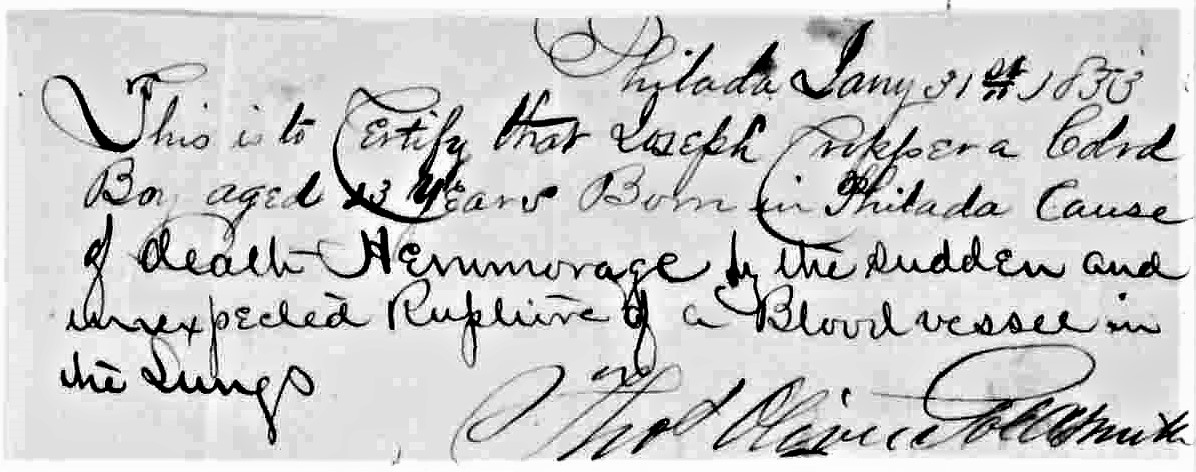 Philada Jany 31st 1853
This is to Certify that Joseph a Colrd
Boy aged 13 Years Born in Philada Cause
of death Hemmorage by the sudden and
unexpected Rupture of a Blood vessel in
the Lungs
Thos Oliver Goldsmith